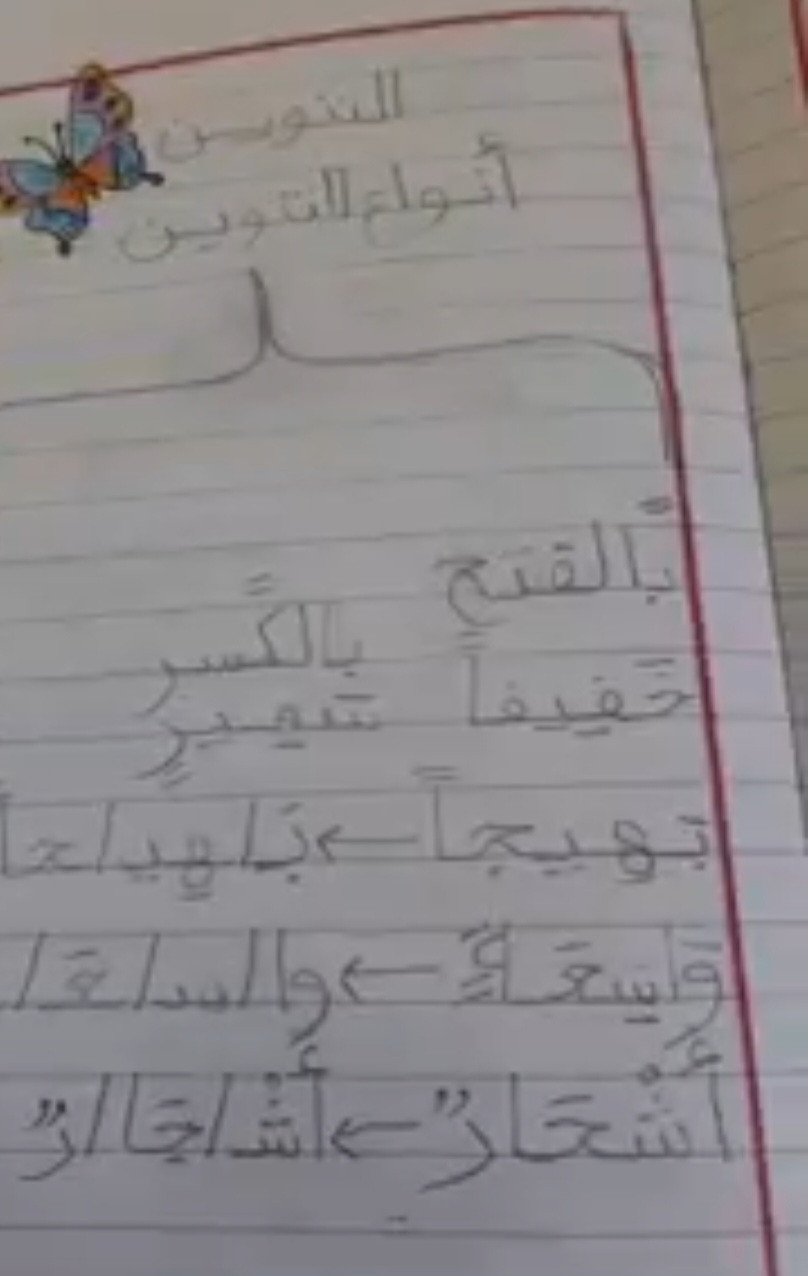 التنوين
أنواع التنوين
بالفتح بالكسر
خَفيفاً شهيرٍ
بَهِيجاً ← بَ/هِيـ/جاً
وَاسِعَةٍ ← وا/سـ/عَـ/
أَشْجَارٌ ← أَشْـ/جَا/رٌ